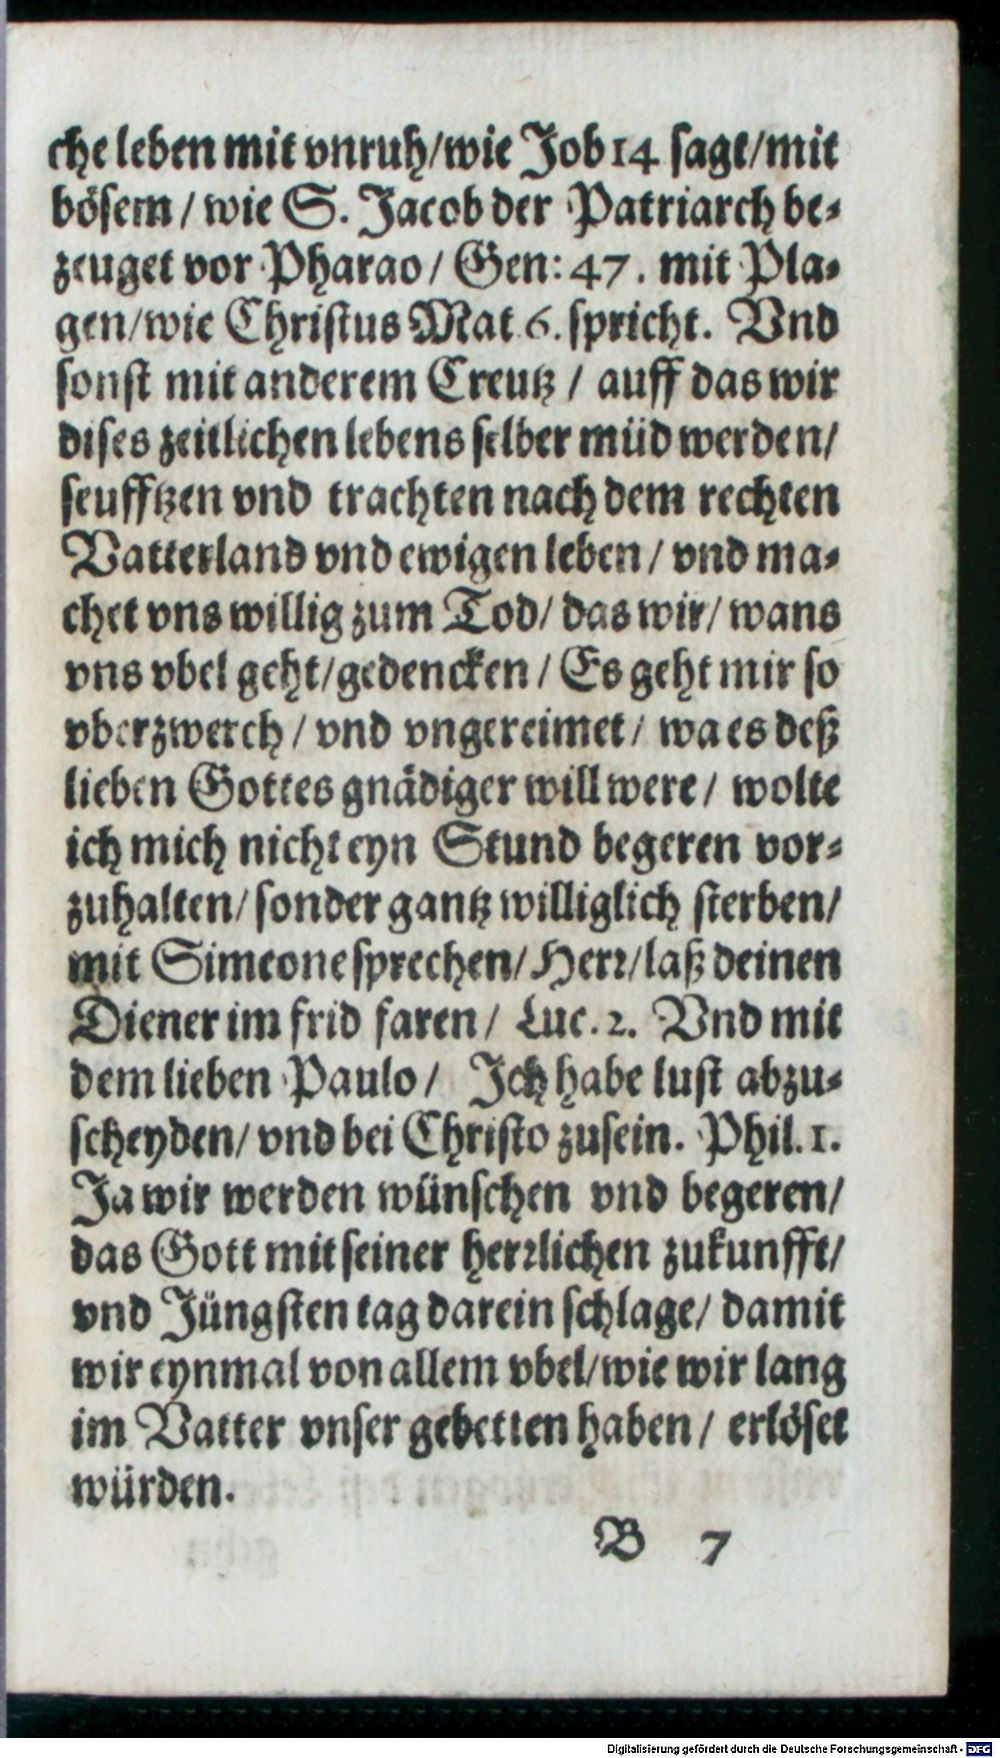 che leben mit vnruh/wie Job 14 sagt/mit
bösem / wie S. Jacob der Patriarch be-
zeuget vor Pharao / Gen: 47. mit Pla-
gen/wie Christus Mat. 6. spricht. Vnd
sonst mit anderem Creutz / auff das wir
dises zeitlichen lebens selber müd werden/
seufftzen vnd trachten nach dem rechten
Vatterland vnd ewigen leben / vnd ma-
chet vns willig zum Tod/ das wir/ wans
vns vbel geht/gedencken / Es geht mir so
vberzwerch / vnd vngereimet/ wa es deß
lieben Gottes gnädiger will were / wolte
ich mich nicht eyn Stund begeren vor-
zuhalten/ sonder gantz williglich sterben/
mit Simeone sprechen/ Herr/laß deinen
Diener im frid faren / Luc. 2. Vnd mit
dem lieben Paulo / Jch habe lust abzu-
scheyden/ vnd bei Christo zusein. Phil. 1.
Ja wir werden wünschen vnd begeren/
das Gott mit seiner herrlichen zukunfft/
vnd Jüngsten tag darein schlage/ damit
wir eynmal von allem vbel/wie wir lang
im Vatter vnser gebetten haben / erlöset
würden.
B 7
Digitalisierung gefördert durch die Deutsche Forschungsgemeinschaft - DFG